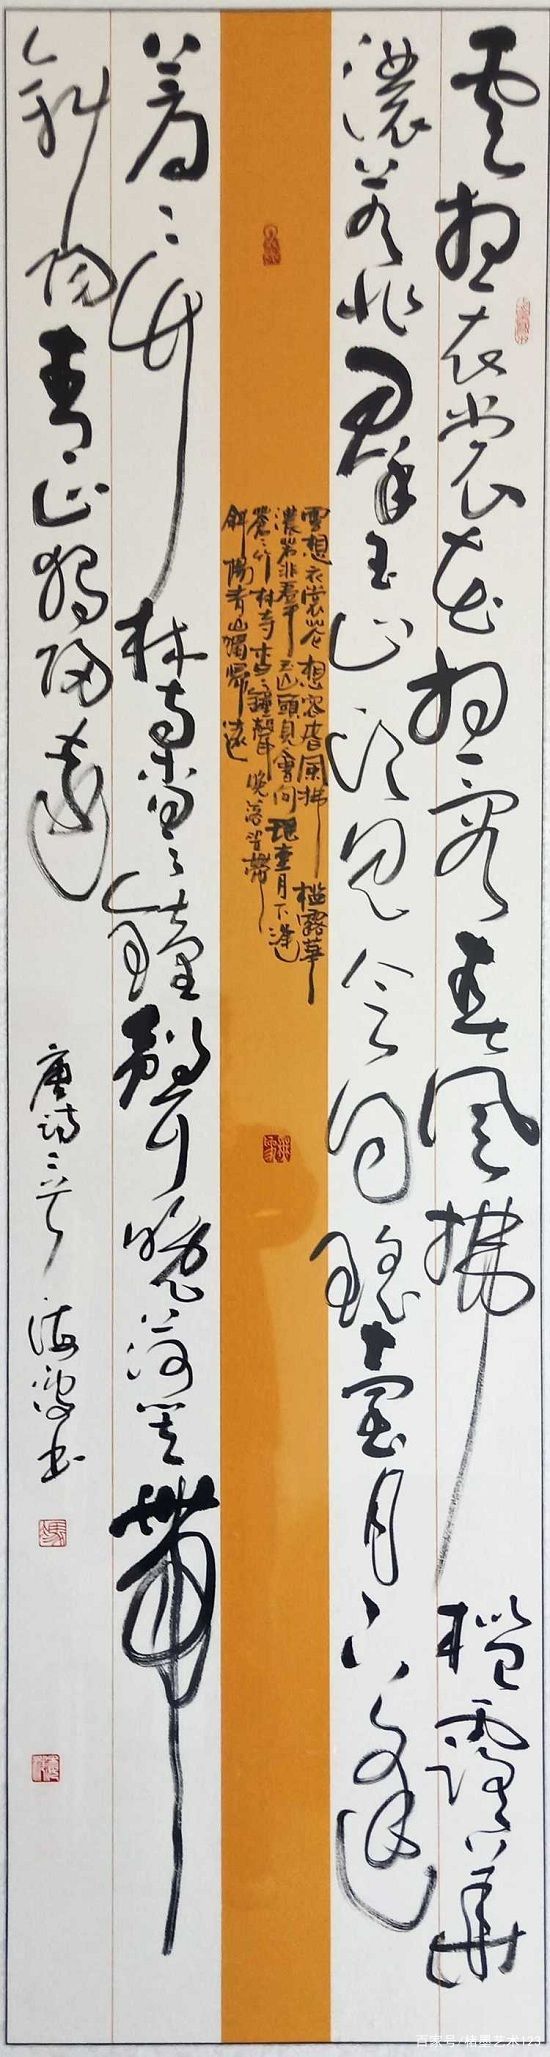 雲想衣裳花想容春風拂檻露華
濃若非群玉山頭見会向瑤臺月下逢
雲想衣裳花想容春風拂檻露華
濃若非群玉山頭見會向瑶臺月下逢
蒼々竹林寺杳々鐘聲晚荷笠帶
斜陽青山獨歸遠
蒼々竹林寺杳々鐘聲晚荷笠帶
斜陽青山獨歸遠
唐詩二首 海波书
百家号/精墨艺术123